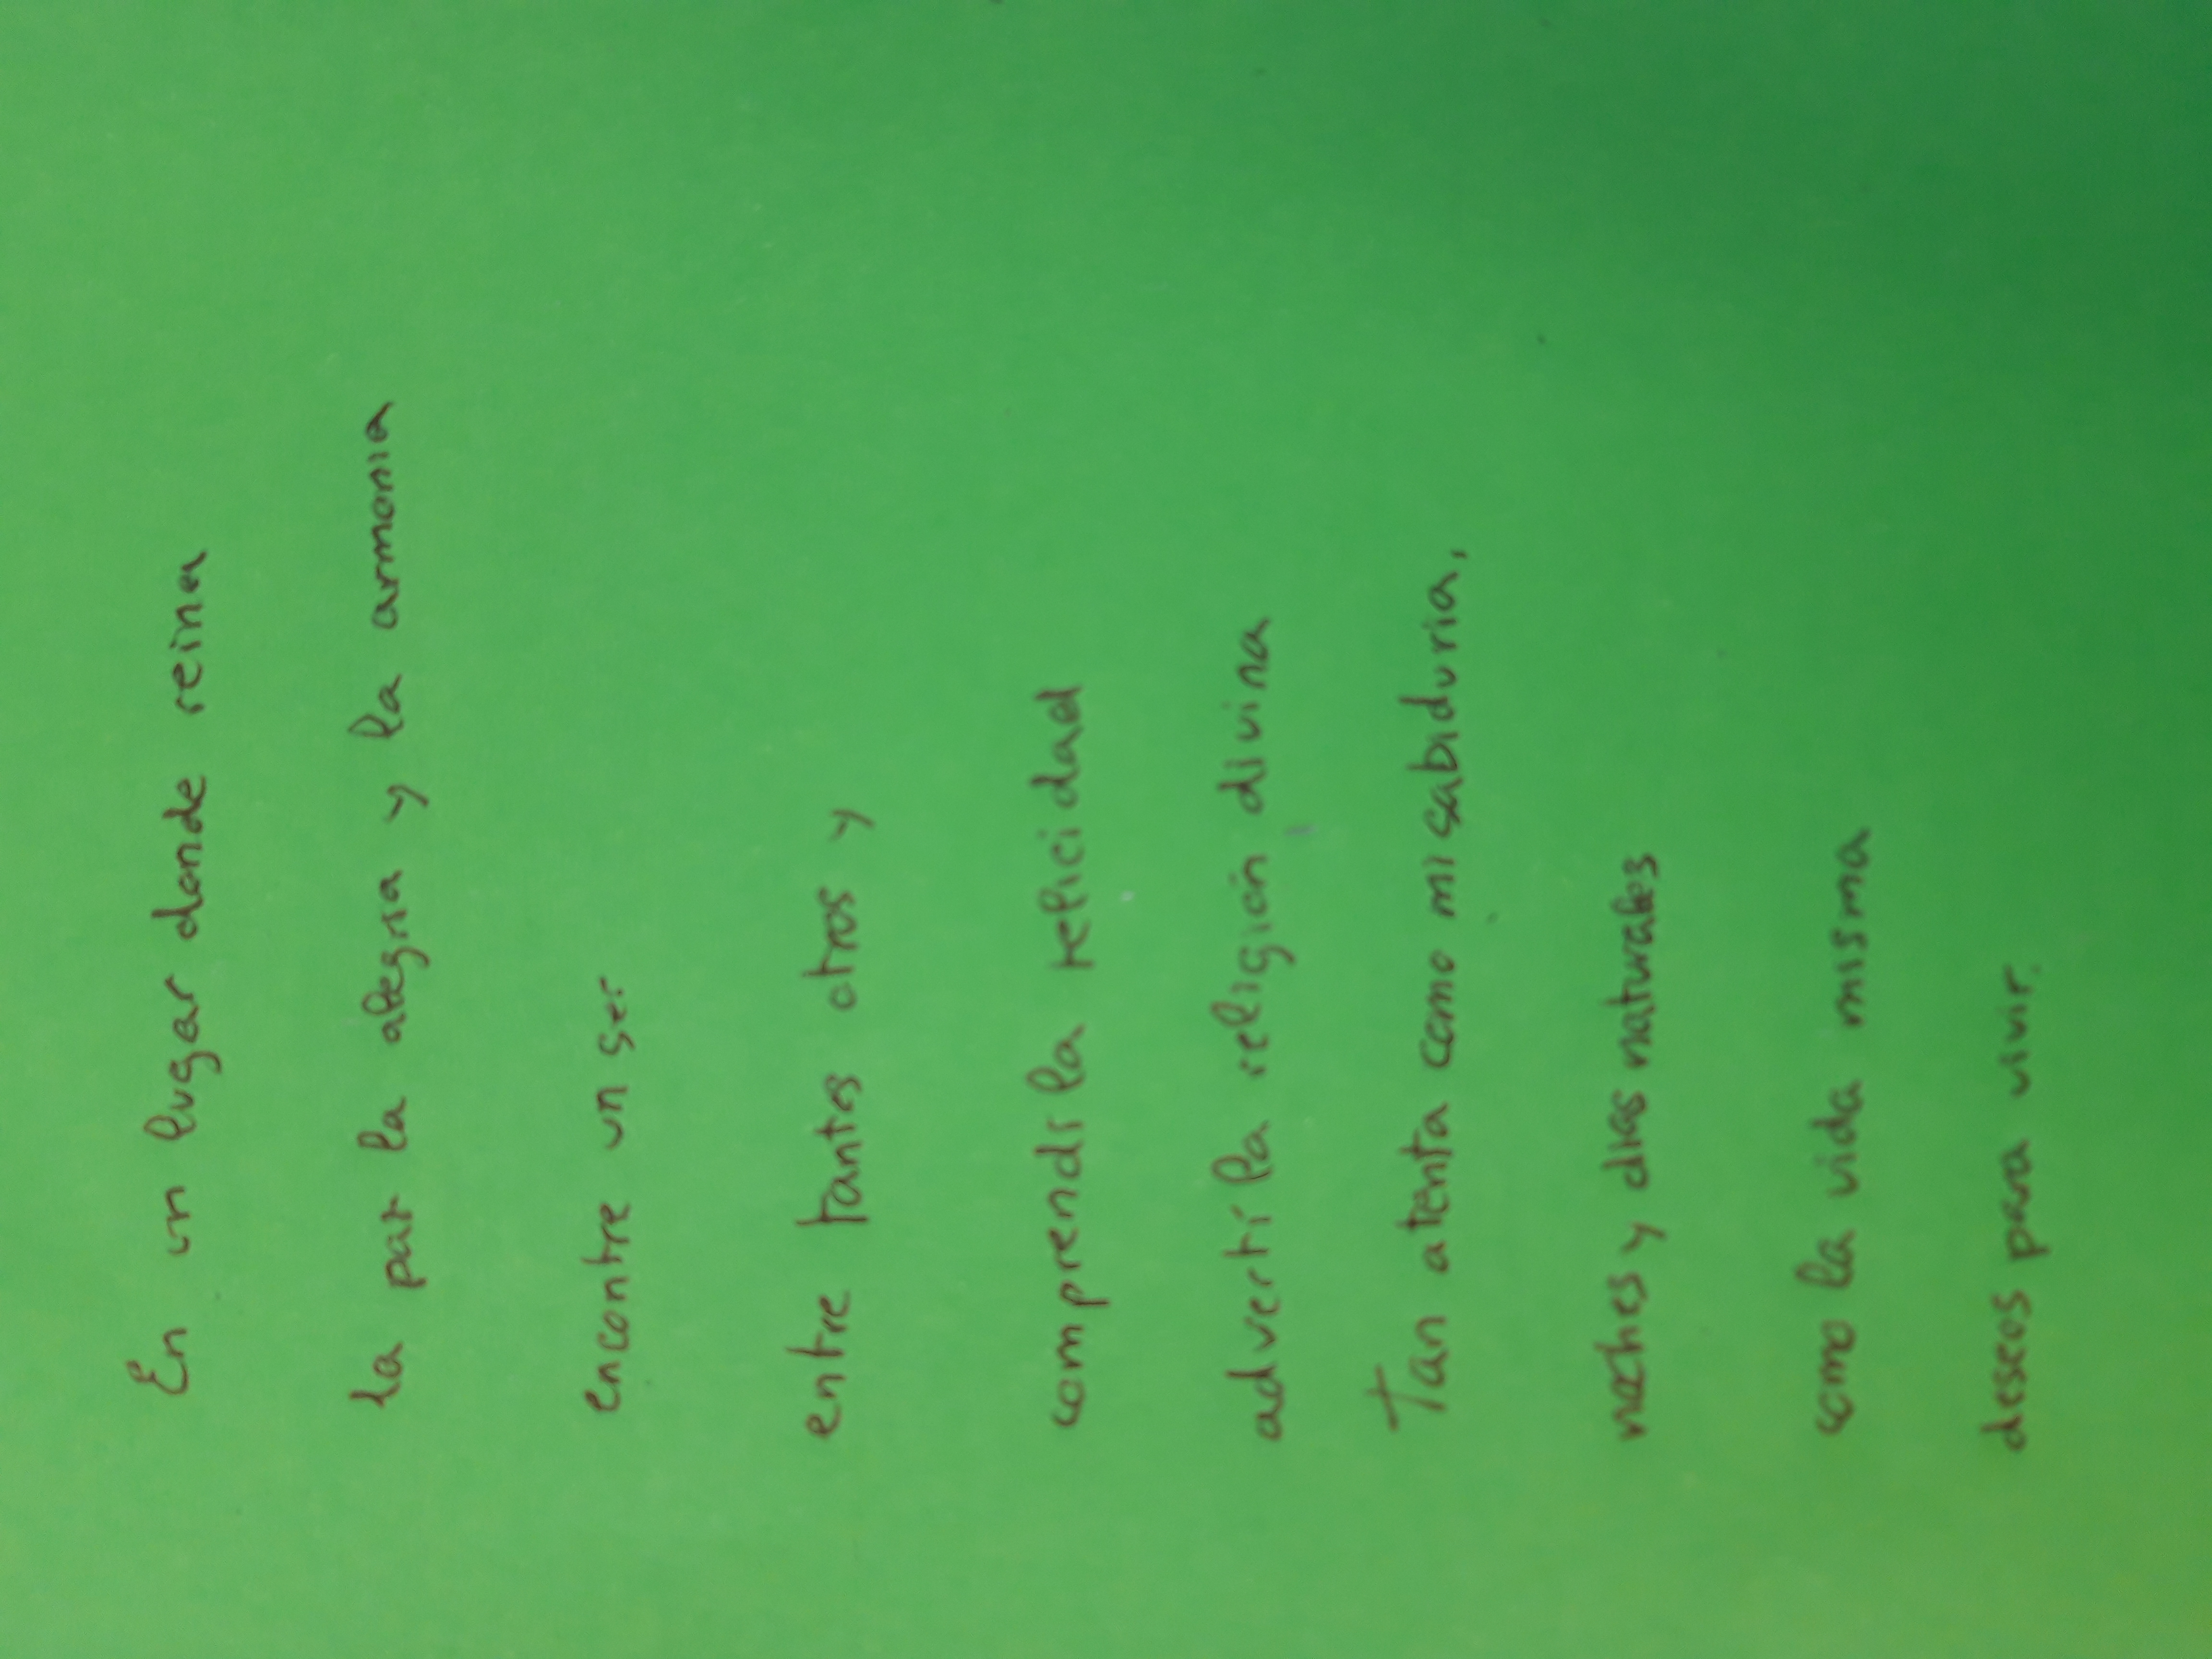 En un lugar donde reina
la paz la alegria y la armonia
encontre un ser
entre tantos otros y
comprendí la felicidad
advertí la religión divina
Tan atenta como mi sabiduria,
noches y dias naturales
como la vida misma
deseos para vivir.